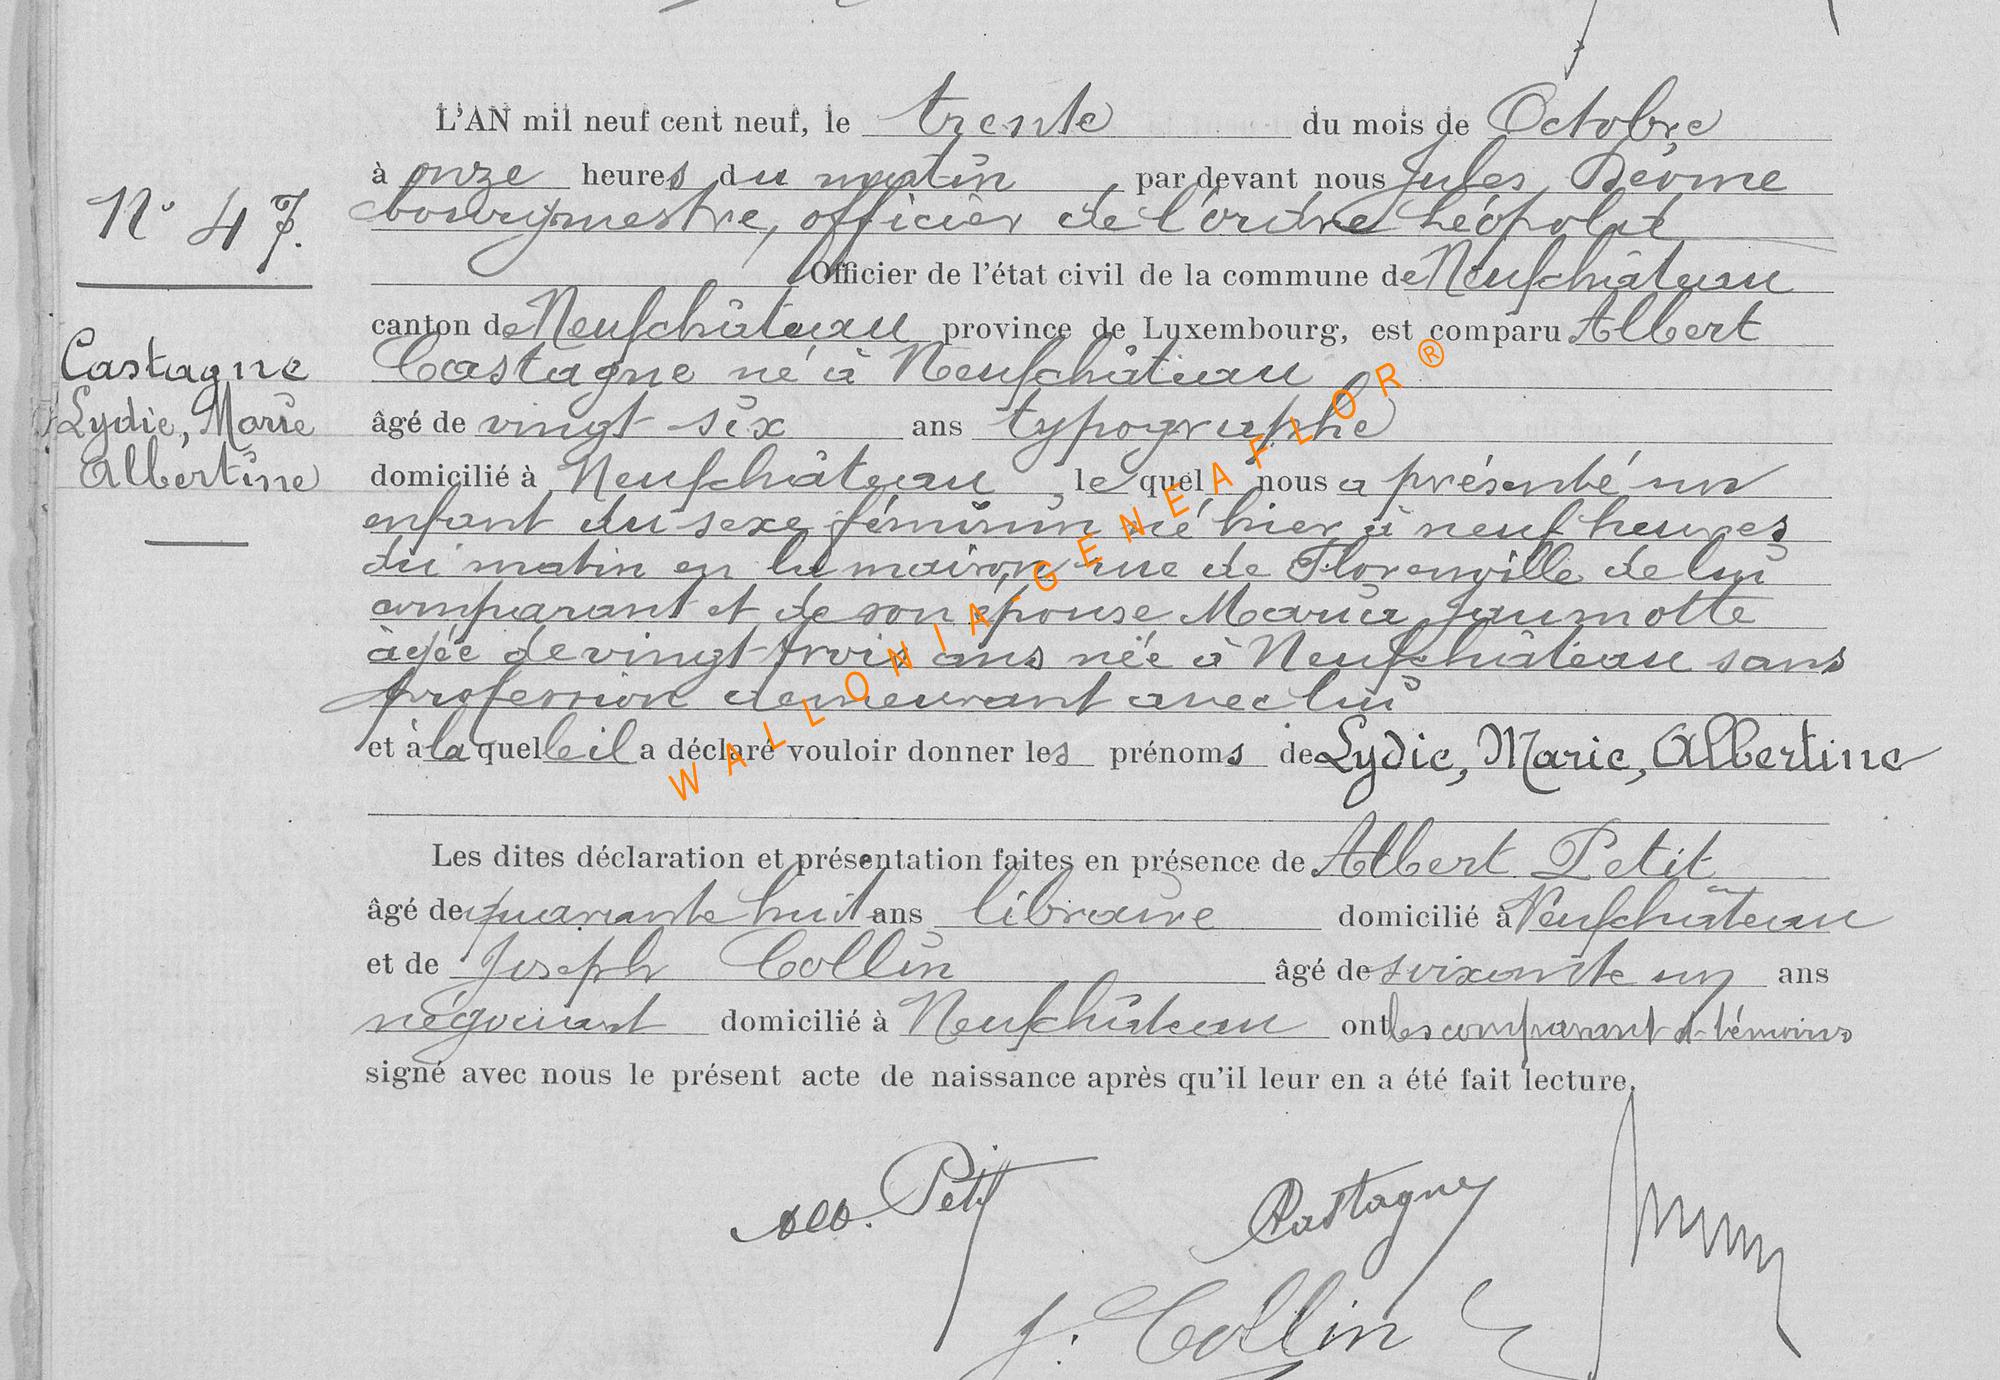 L'AN mil neuf cent neuf, le trente du mois de Octobre
à onze heures du matin, par devant nous Jules Déome
N° 47.
bourgmestre, officier de l'ordre Léopold
Officier de l'état civil de la commune de Neufchâteau
canton de Neufchâteau province de Luxembourg, est comparu Albert
Castagne
Castagne né à Neufchâteau
Lydie, Marie
âgé de vingt six ans typographe
Albertine
domicilié à Neufchâteau, le quel nous a présenté un
enfant du sexe féminin né hier à neuf heures
du matin en la maison rue de Florenville de lui
comparant et de son épouse Maria Jaumotte
âgée de vingt trois ans née à Neufchâteau sans
profession demeurant avec lui
et à la quelle il a déclaré vouloir donner les prénoms de Lydie, Marie, Albertine
Les dites déclaration et présentation faites en présence de Albert Petit
âgé de quarante huit ans libraire domicilié à Neufchâteau
et de Joseph Collin âgé de soixante un ans
négociant domicilié à Neufchâteau ont les comparant et témoins
signé avec nous le présent acte de naissance après qu'il leur en a été fait lecture.
Alb. Petit
Castagne
J. Collin
WALLONIA-GENEAFLOR®